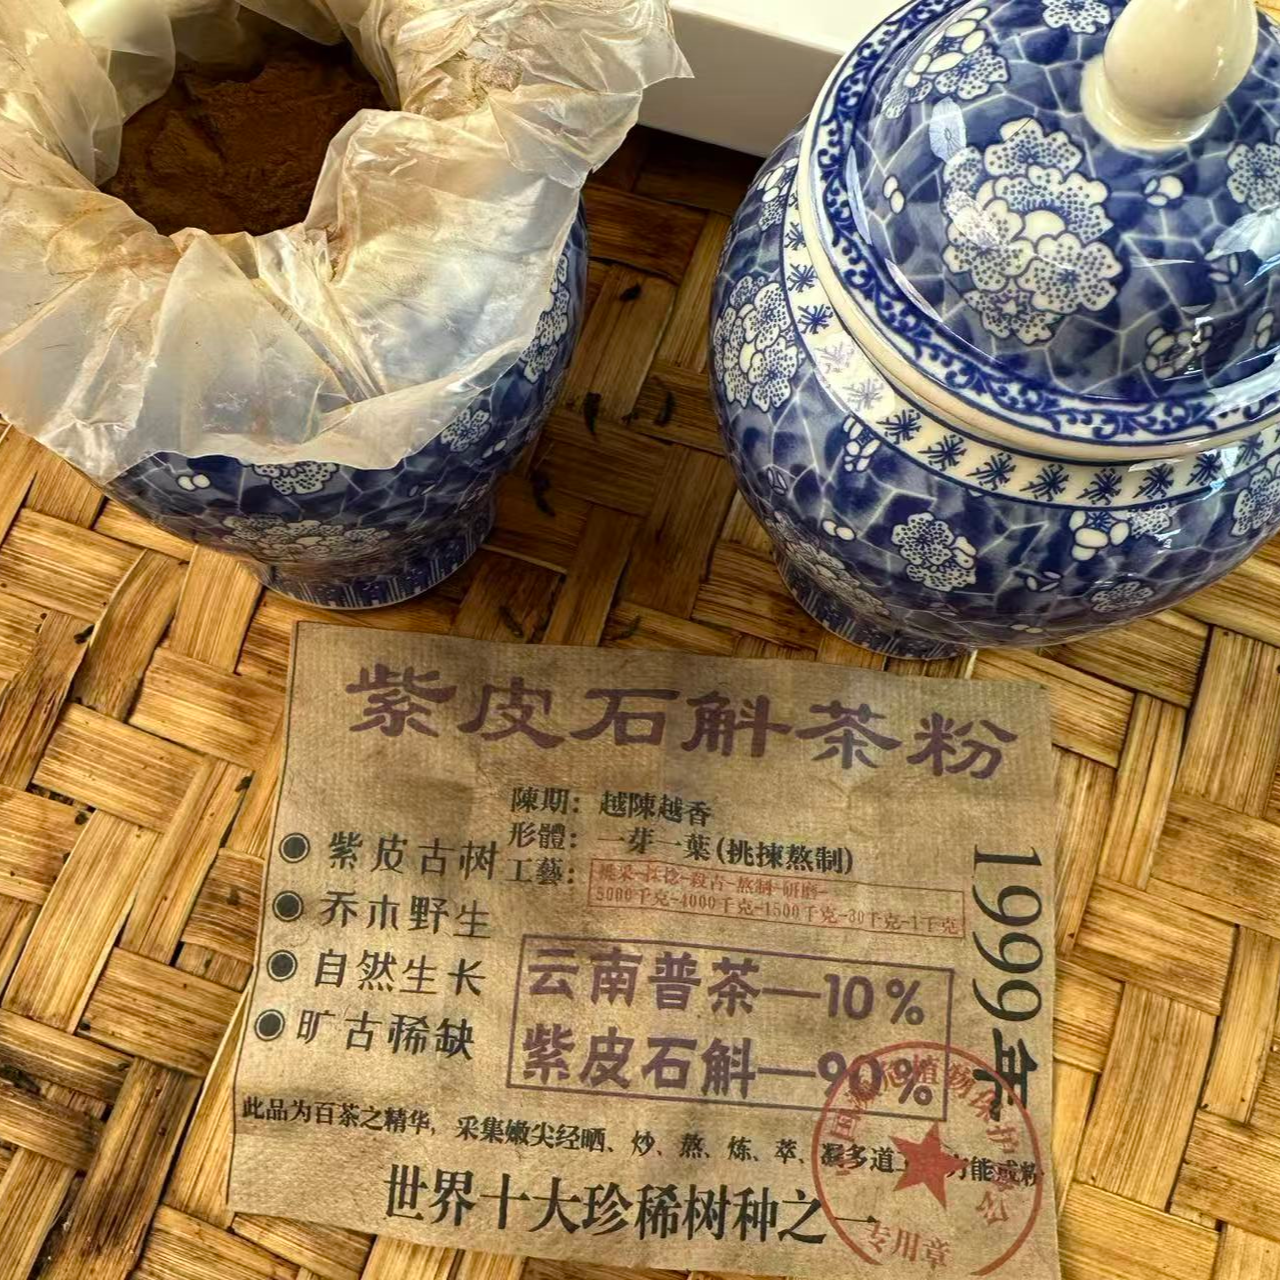 紫皮石斛茶粉
陳期：越陳越香
形體：一芽一葉(挑揀熬制)
工藝：
挑采-揉捻-殺青-熬制-研磨-
5000千克-4000千克-1500千克-30千克-1千克
紫皮古树
乔木野生
自然生长
旷古稀缺
云南普茶—10%
紫皮石斛—90%
1999年
此品为百茶之精华，采集嫩尖经晒、炒、熬、炼、萃、凝多道
方能成粉
世界十大珍稀树种之一
植物保护
专用章